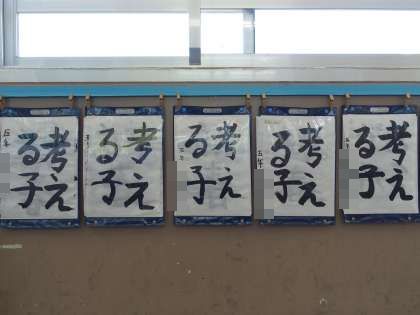 考え
る子
五年
考え
る子
考え
る子
考え
る子
五年
考え
る子